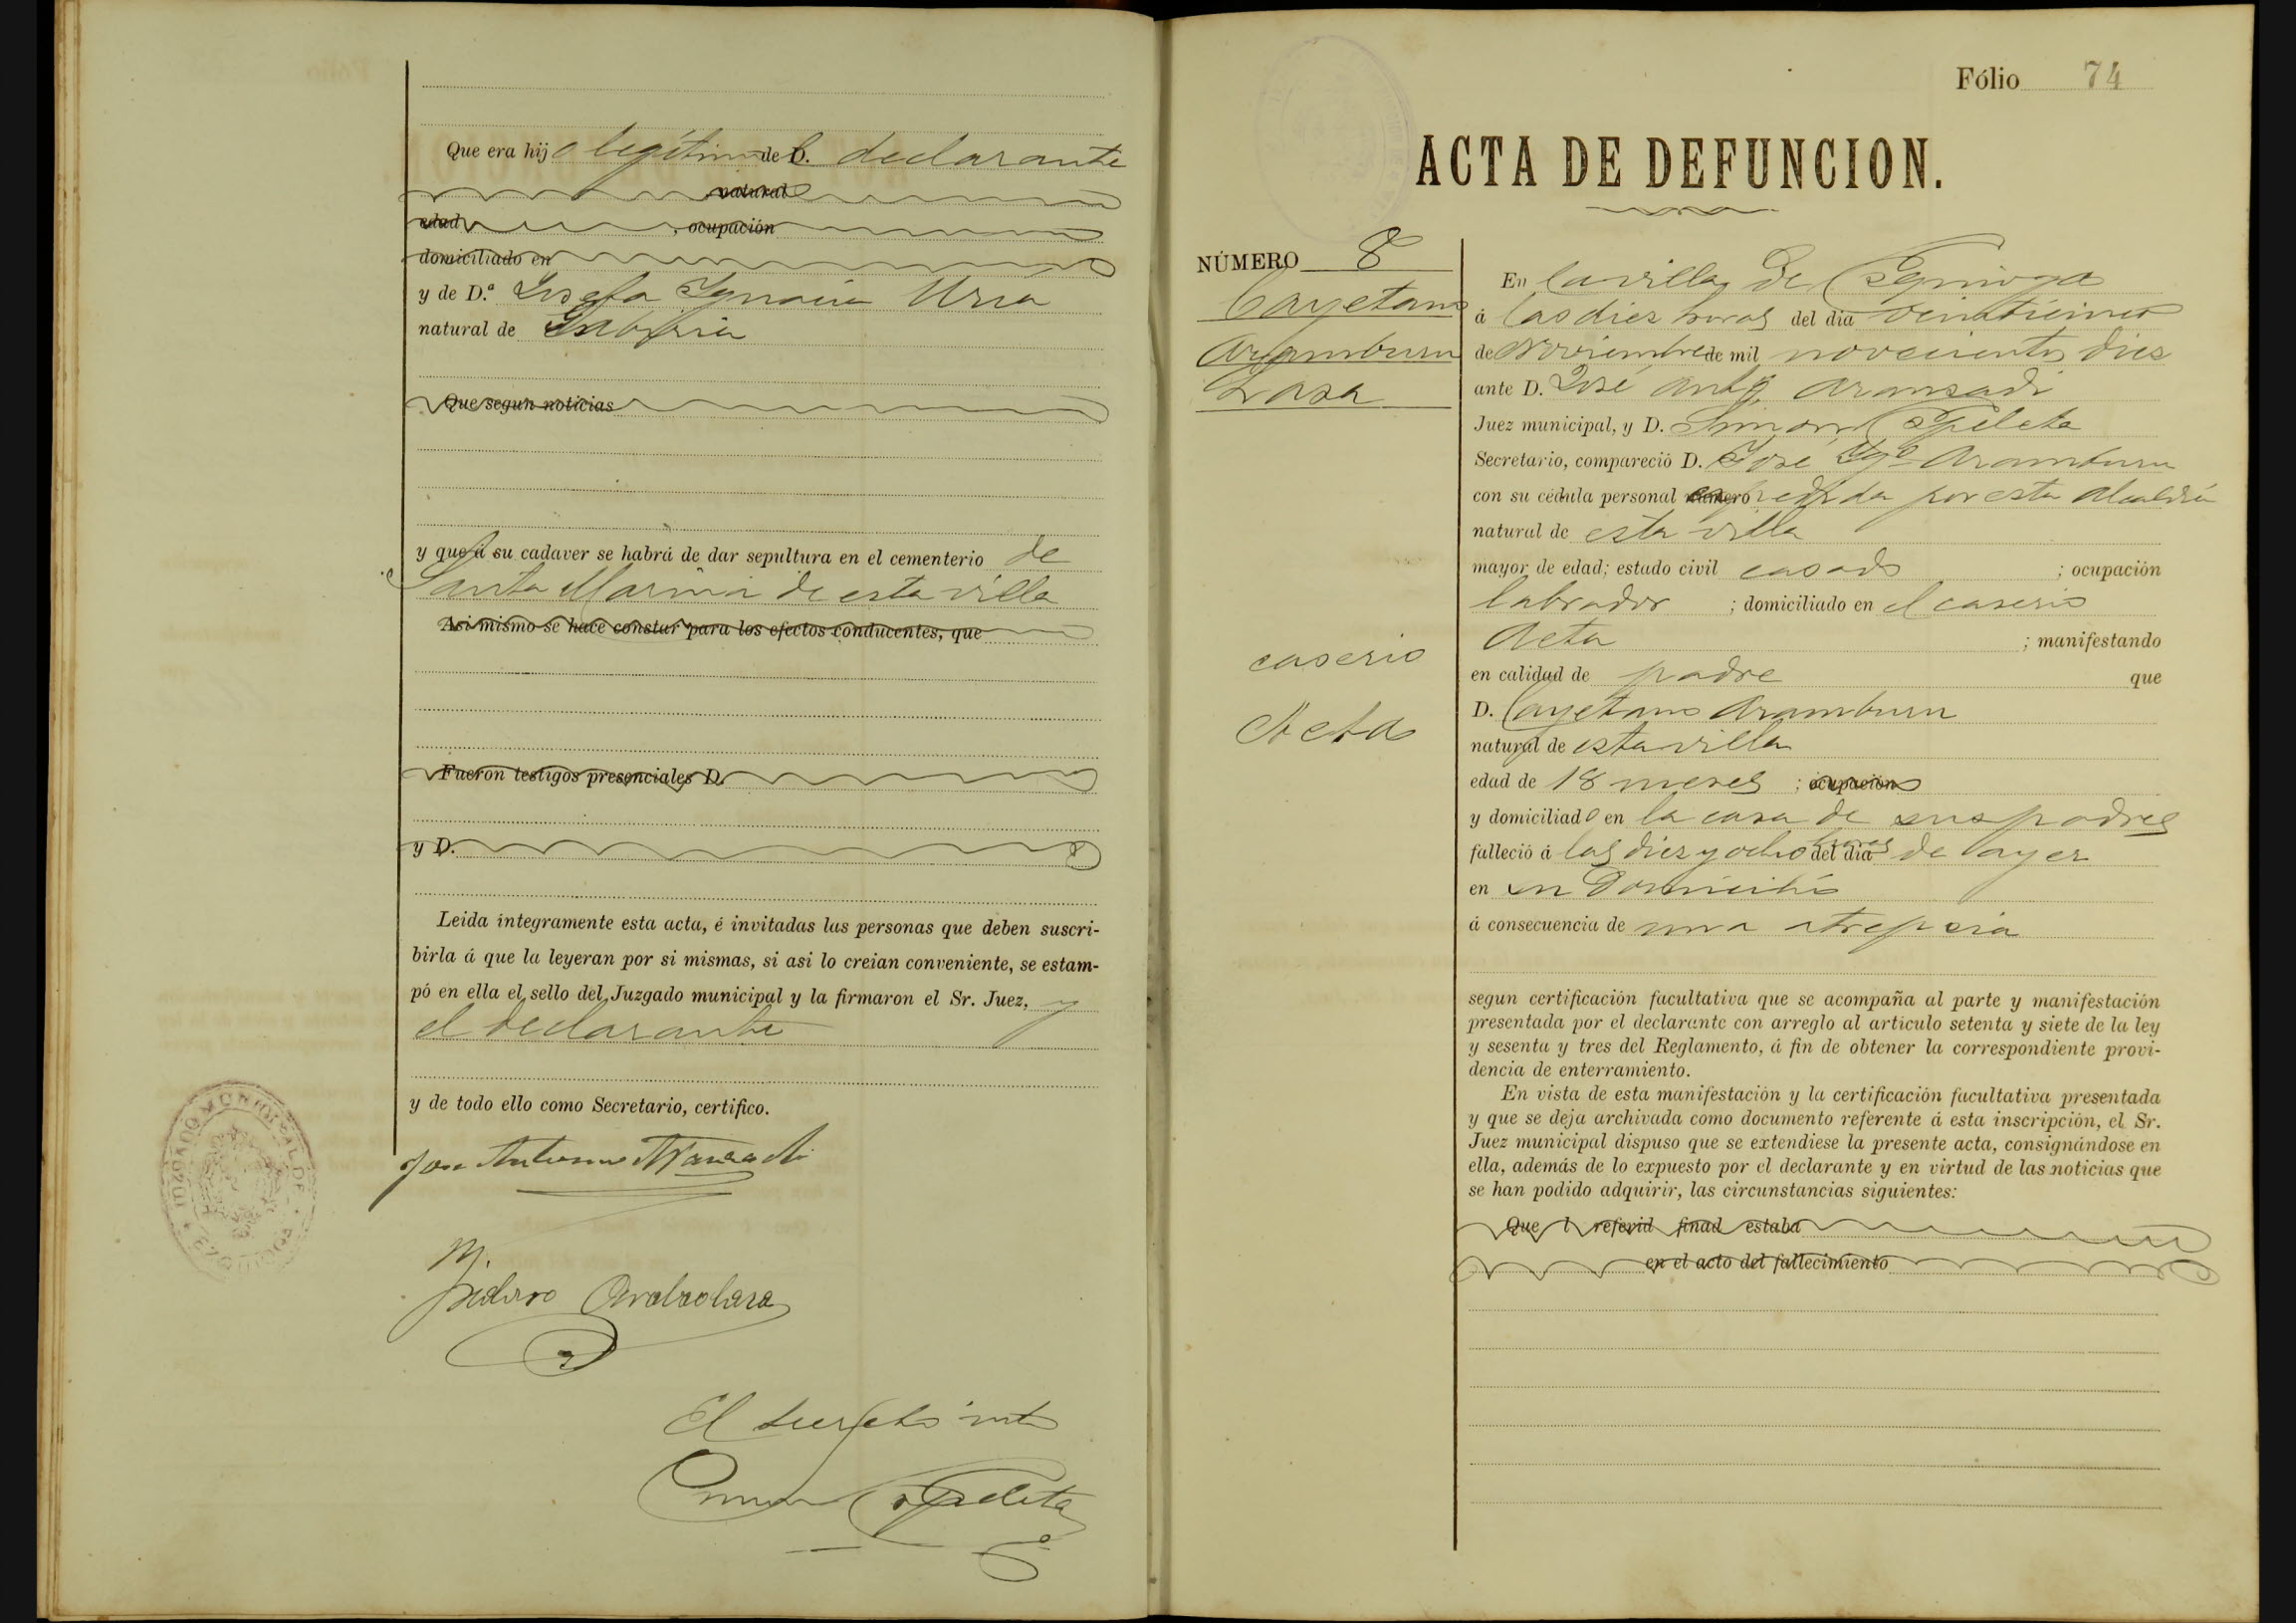 Que era hijo legítimo del declarante
natural
edad , ocupación
domiciliado en
y de D.ª Josefa Ignacia Uria
natural de
Que segun noticias
y que á su cadaver se habrá de dar sepultura en el cementerio de
Santa Marina de esta villa
Asi mismo se hace constar para los efectos conducentes, que
Fueron testigos presenciales D.
y D.
Leida integramente esta acta, é invitadas las personas que deben suscri-
birla á que la leyeran por si mismas, si asi lo creian conveniente, se estam-
pó en ella el sello del Juzgado municipal y la firmaron el Sr. Juez, y
el declarante
y de todo ello como Secretario, certifico.
José Antonio Aranzadi
JUZGADO MUNICIPAL DE
Fólio 74
ACTA DE DEFUNCION.
NÚMERO 8
Cayetano
Aramburu
Lasa
caserio
Aeta
En la villa de
á las diez horas del dia
de Noviembre de mil novecientos diez
ante D. José Antº Aranzadi
Juez municipal, y D. Simon
Secretario, compareció D. José Igº Aramburu
con su cédula personal número expedida por esta Alcaldia
natural de esta villa
mayor de edad; estado civil casado ; ocupación
labrador ; domiciliado en el caserio
Aeta ; manifestando
en calidad de padre que
D. Cayetano Aramburu
natural de esta villa
edad de 18 meses ; ocupación
y domiciliado en la casa de sus padres
falleció á las diez y ocho horas del dia de ayer
en su domicilio
á consecuencia de una atrepsia
segun certificación facultativa que se acompaña al parte y manifestación
presentada por el declarante con arreglo al articulo setenta y siete de la ley
y sesenta y tres del Reglamento, á fin de obtener la correspondiente provi-
dencia de enterramiento.
En vista de esta manifestación y la certificación facultativa presentada
y que se deja archivada como documento referente á esta inscripción, el Sr.
Juez municipal dispuso que se extendiese la presente acta, consignándose en
ella, además de lo expuesto por el declarante y en virtud de las noticias que
se han podido adquirir, las circunstancias siguientes:
Que l referid finad estaba
en el acto del fallecimiento